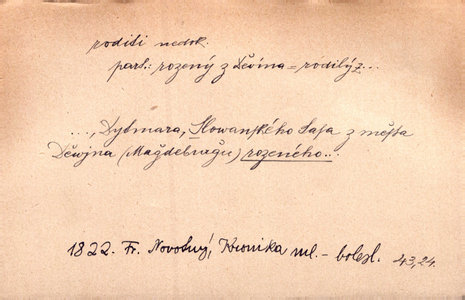 roditi nedok.
part.: rozený z Děvína = rodilý z...
..., Dybmara, Slowanského Sasa z města
Děwjna (Magdeburgu) rozeného...
1822. Fr. Novotný, Kronika ml.-bolesl. 43,24.